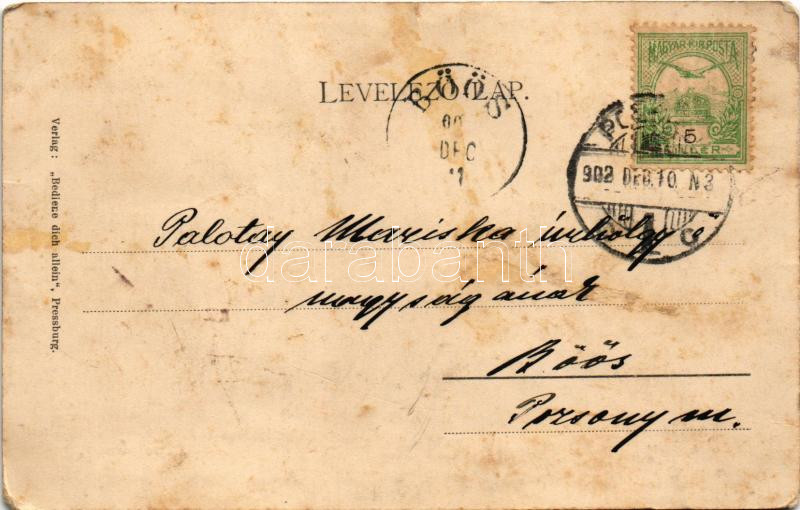 MAGYAR KIR. POSTA
LEVELEZŐ LAP.
BŐŐS
DEC
5
902 DEC. 10. N 3
Palotay Mariska úrhölgy
nagyságának
Bőős
Pozsony m.
Verlag: „Bediene dich allein", Pressburg.
darabanth